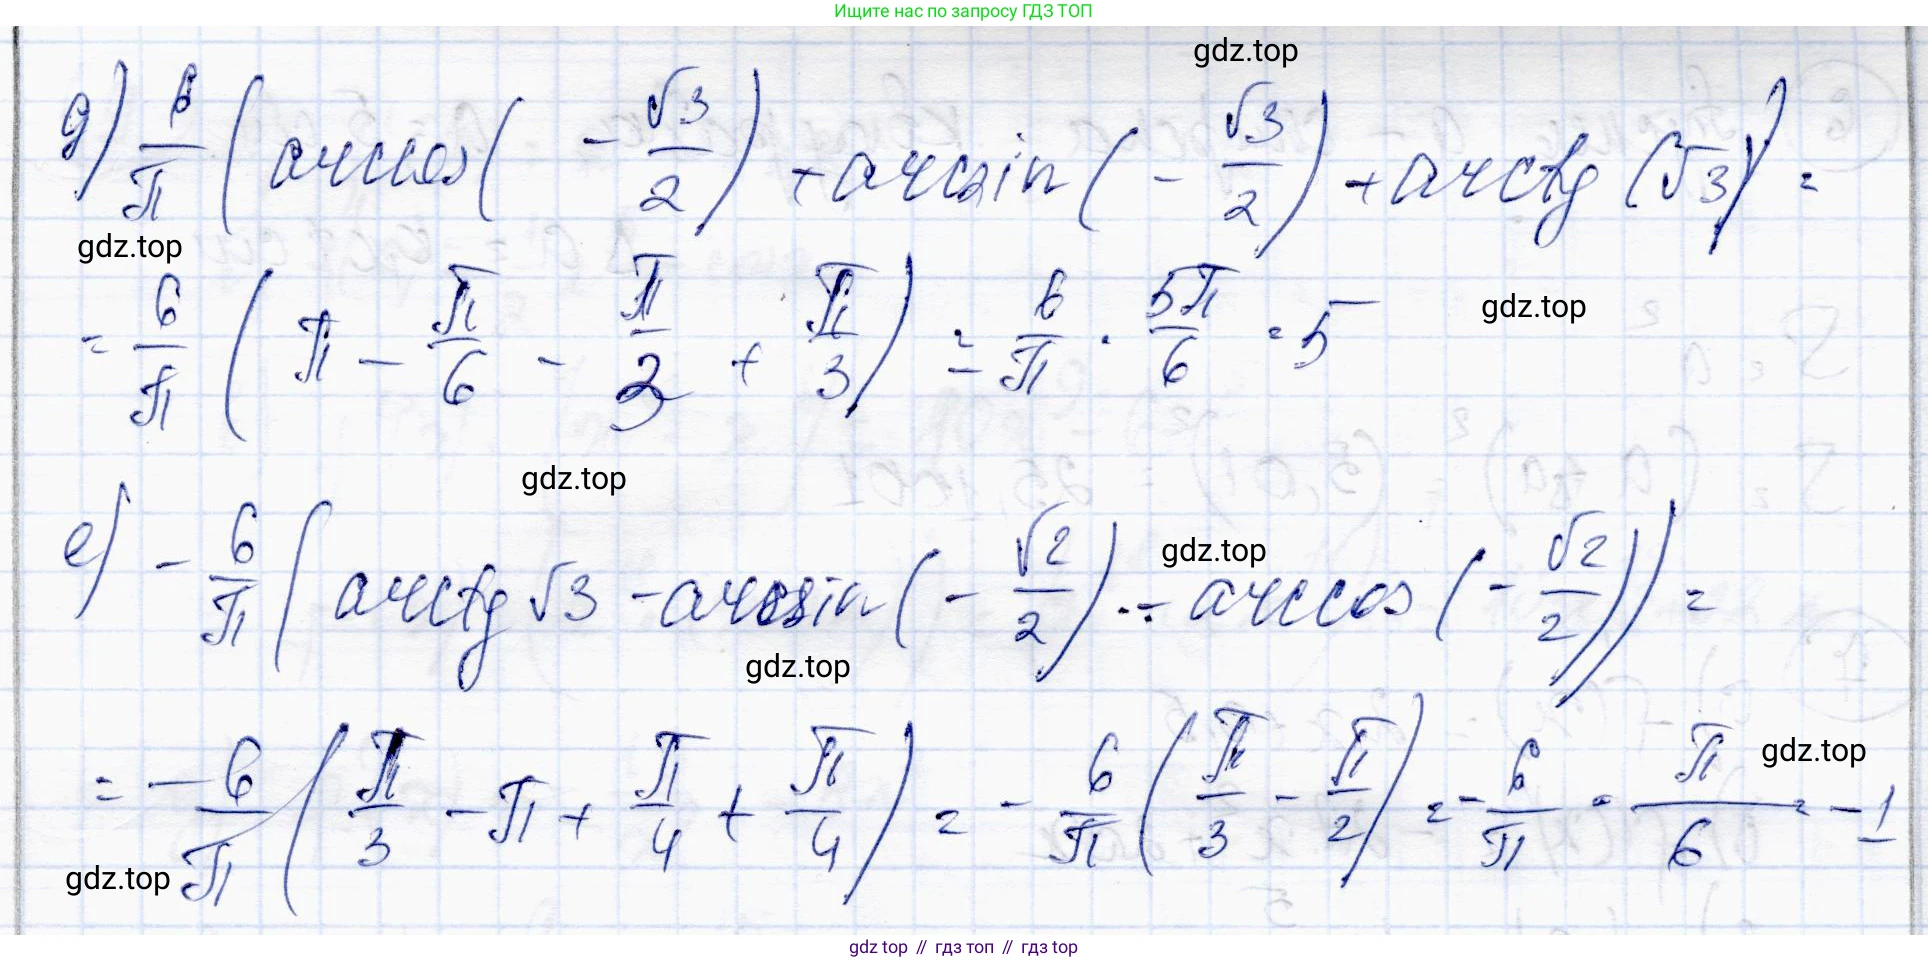 Ищите нас по запросу ГДЗ ТОП
gdz.top
д) 6/π (arccos(-√3/2) + arcsin(-√3/2) + arctg(√3)) =
gdz.top
= 6/π (π - π/6 - π/2 + π/3) = 6/π · 5π/6 = 5
gdz.top
gdz.top
е) -6/π (arctg √3 - arcsin(-√2/2) - arccos(-√2/2)) =
gdz.top
gdz.top
= -6/π (π/3 - π + π/4 + π/4) = -6/π (π/3 - π/2) = -6/π · π/6 = -1
gdz.top
gdz.top
gdz top // гдз топ // гдз top